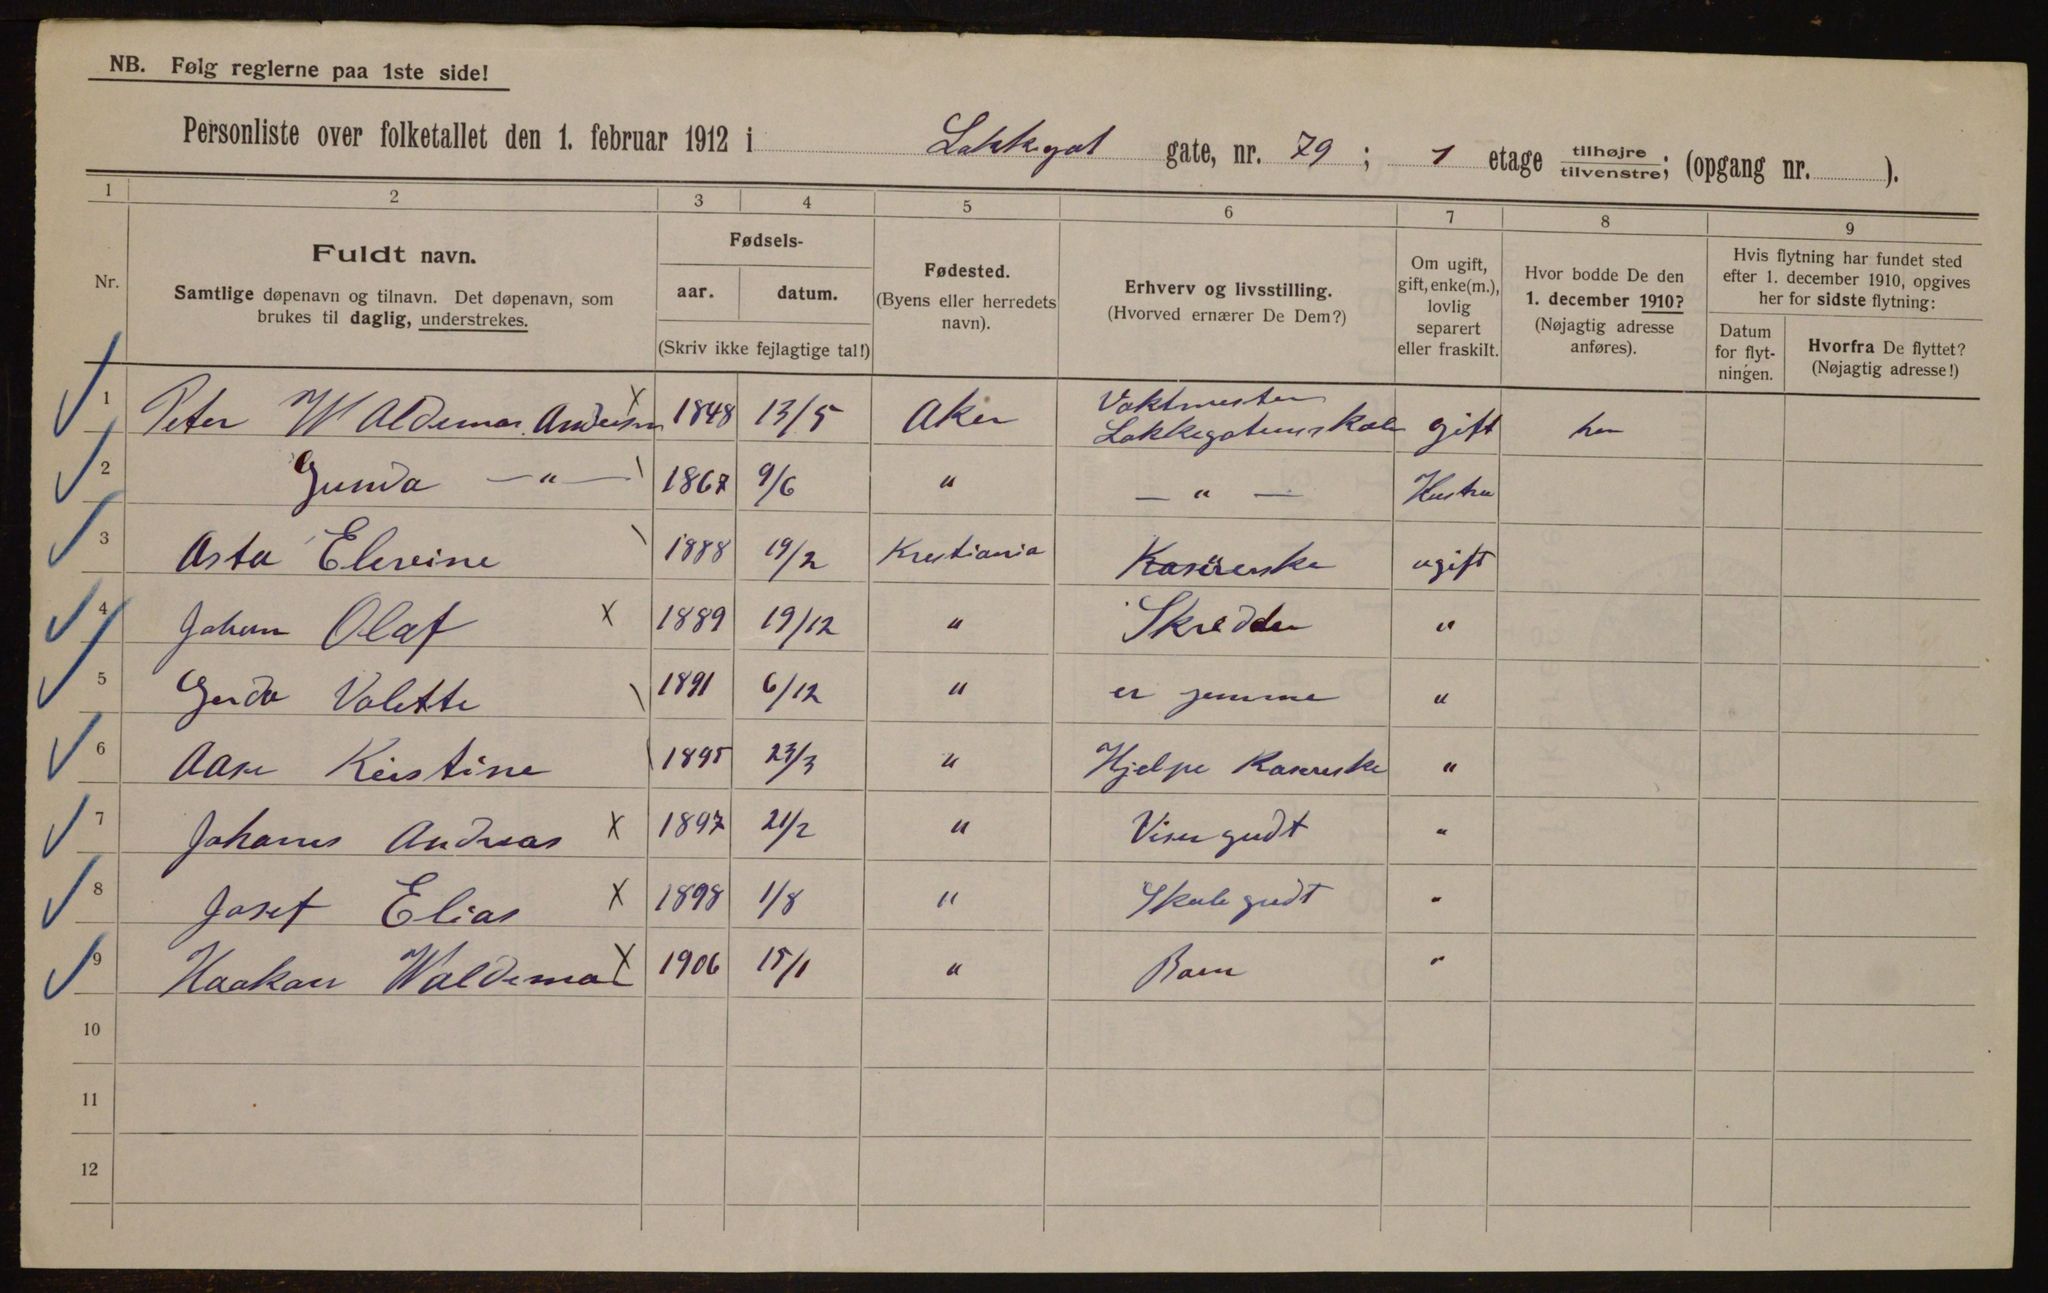 NB. Følg reglerne paa 1ste side!
Personliste over folketallet den 1. februar 1912 i Lakkegat gate, nr. 79 ; 1 etage tilhøjre tilvenstre; (opgang nr. ).
1 2 3 4 5 6 7 8 9
Nr.
Fuldt navn.
Samtlige døpenavn og tilnavn. Det døpenavn, som
brukes til daglig, understrekes.
Fødsels-
aar. datum.
(Skriv ikke fejlagtige tal!)
Fødested.
(Byens eller herredets
navn).
Erhverv og livsstilling.
(Hvorved ernærer De Dem?)
Om ugift,
gift, enke(m.),
lovlig
separert
eller fraskilt.
Hvor bodde De den
1. december 1910?
(Nøjagtig adresse
anføres).
Hvis flytning har fundet sted
efter 1. december 1910, opgives
her for sidste flytning:
Datum
for flyt-
ningen.
Hvorfra De flyttet?
(Nøjagtig adresse!)
1 Peter Waldemar Andersen X 1848 13/5 Aker Vaktmester Lakkegatens skole gift her
2 Gunda — " — \ 1867 9/6 " — " — Hustru
3 Asta Elevine \ 1888 19/2 Krestiania Kasererske ugift
4 Johan Olaf X 1889 19/12 " Skredder "
5 Gerda Valette \ 1891 6/12 " er jemme "
6 Aase Kristine \ 1895 23/3 " Hjelpe Kasereske "
7 Johanes Andreas X 1897 21/2 " Viser gudt "
8 Josef Elias X 1898 1/8 " Skole gudt "
9 Haakon Waldemar X 1906 15/1 " Barn "
10
11
12